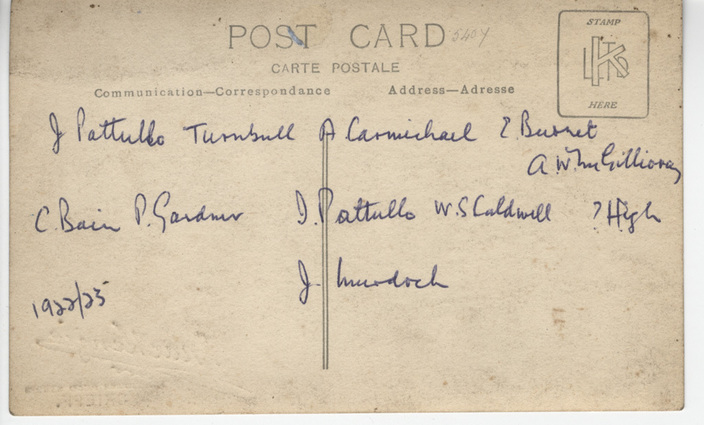 POST CARD 5404
STAMP
CARTE POSTALE
Communication—Correspondance Address—Adresse
HERE
J Pattullo Turnbull A Carmichael E Burnet
A. W. McGillivray
C. Bain P. Gardner D. Pattullo W. S Caldwell ? High
J. Murdoch
1922/23
CRIEFF